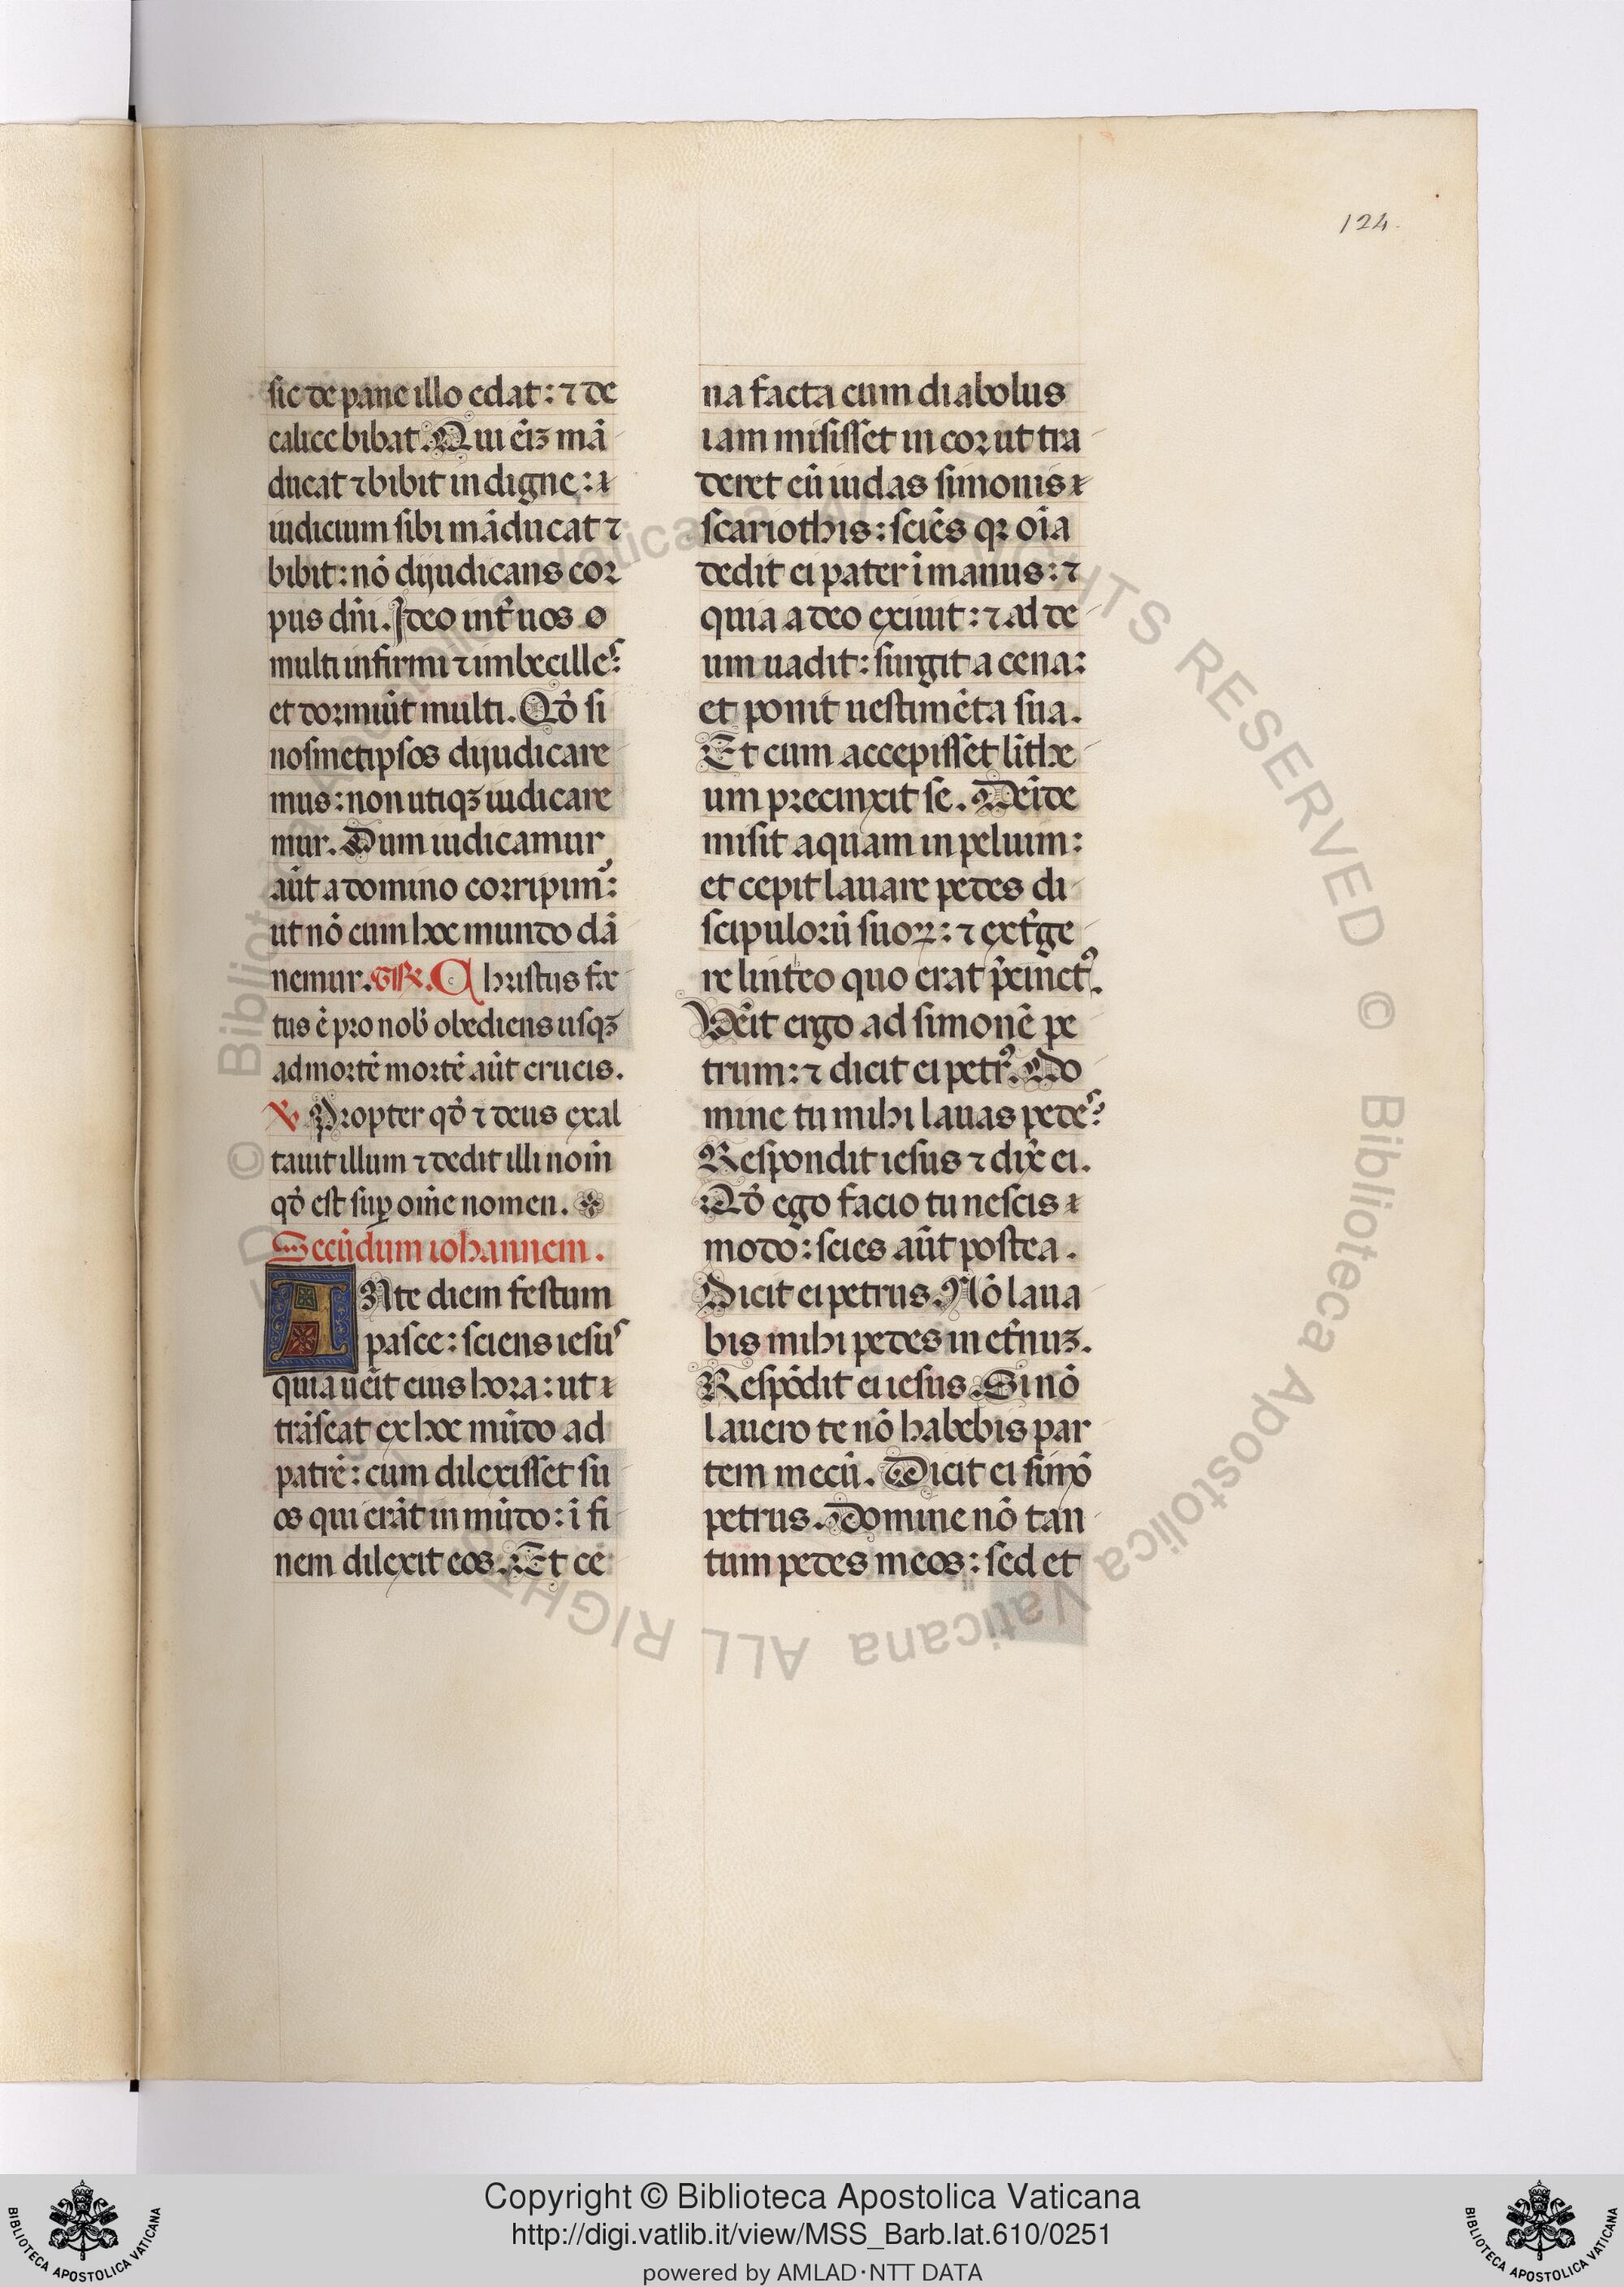 124.
sic de pane illo edat: ⁊ de
calice bibat. Qui em̄ mā
ducat ⁊ bibit indigne: ⁊
iudicium sibi māducat ⁊
bibit: nō dijudicans cor
pus dn̄i. Ideo int̄ uos o
multi infirmi ⁊ imbecilles:
et dormiūt multi. Qd̄ si
nosmetipsos dijudicare
mus: non utiqꝫ iudicare
mur. Dum iudicamur
aūt a domino corripimꝰ:
ut nō cum hoc mundo dā
nemur. GR̄. Christus fac
tus ē pro nob̄ obediens usqꝫ
ad mortē mortē aūt crucis.
℣ Propter qd̄ ⁊ deus exal
tauit illum ⁊ dedit illi nom̄
qd̄ est suꝑ om̄e nomen.
Secūdum iohannem.
ANte diem festum
pasce: sciens iesus
quia uēit eius hora: ut
trāseat ex hoc mūdo ad
patrē: cum dilexisset su
os qui erāt in mūdo: ī fi
nem dilexit eos. Et ce
na facta cum diabolus
iam misisset in cor ut tra
deret eū iudas simonis
scariothis: sciēs qꝛ oīa
dedit ei pater ī manus: ⁊
quia a deo exiuit: ⁊ ad de
um uadit: surgit a cena:
et ponit uestimēta sua.
Et cum accepisset līthe
um precinxit se. Deīde
misit aquam in peluim:
et cepit lauare pedes di
scipulorū suoꝝ: ⁊ ext̄ge
re linteo quo erat p̄cinctꝰ.
Vēit ergo ad simonē pe
trum: ⁊ dicit ei petrꝰ. Do
mine tu mihi lauas pedes?
Respondit iesus ⁊ dix̄ ei.
Qd̄ ego facio tu nescis
modo: scies aūt postea.
Dicit ei petrus. Nō laua
bis mihi pedes in et̄nuꝫ.
Respōdit ei iesus. Si nō
lauero te nō habebis par
tem mecū. Dicit ei simō
petrus. Domine nō tan
tum pedes meos: sed et
© Biblioteca Apostolica Vaticana ALL RIGHTS RESERVED © Biblioteca Apostolica Vaticana ALL RIGHTS RESERVED
Copyright © Biblioteca Apostolica Vaticana
http://digi.vatlib.it/view/MSS_Barb.lat.610/0251
powered by AMLAD·NTT DATA
BIBLIOTECA APOSTOLICA VATICANA
BIBLIOTECA APOSTOLICA VATICANA